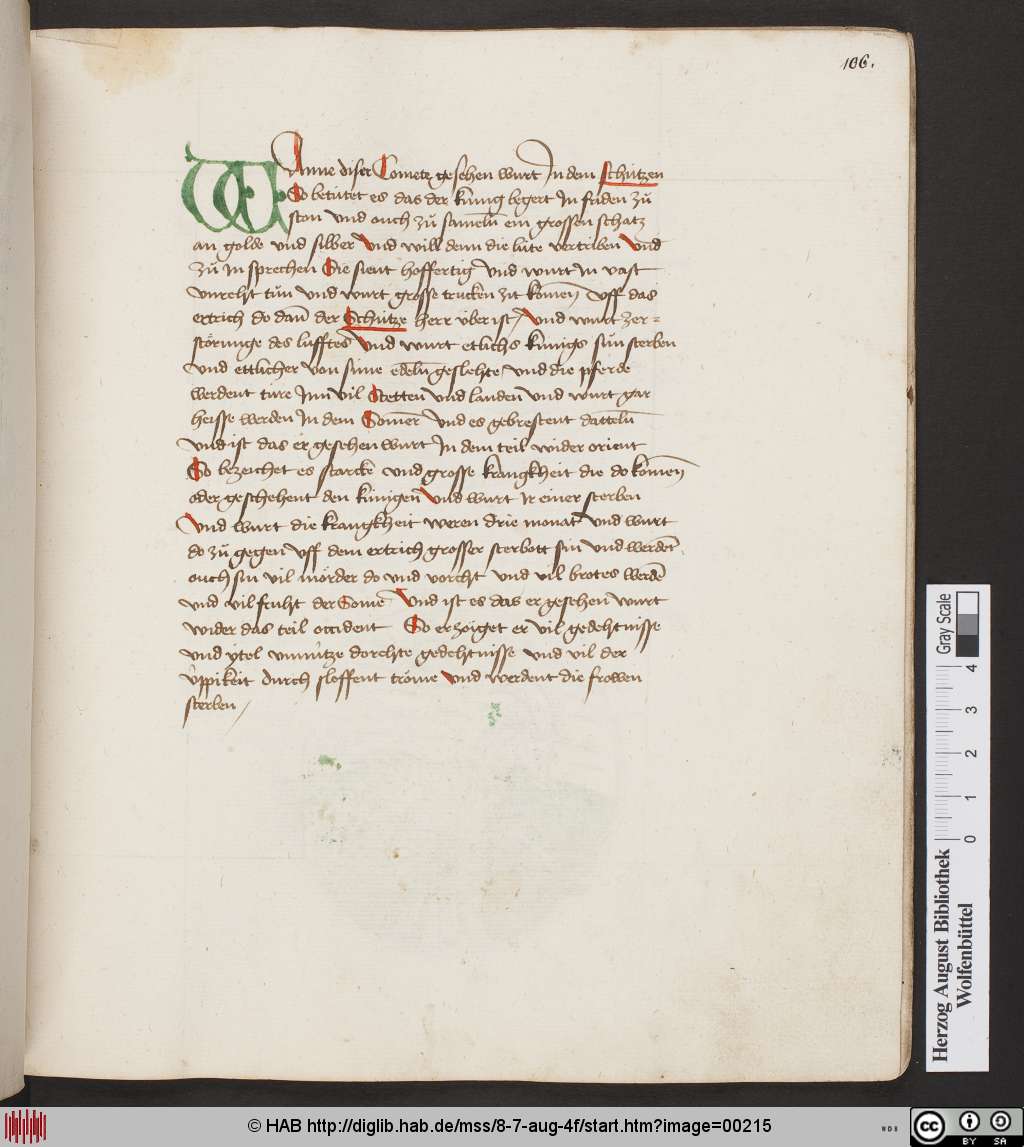 106.
WAnne diser Cometz gesehen wurt In dem schützen
So betütet es das der künig begert In friden zů
ston vnd ouch zů samelū ein grossen schatz
an golde vnd silber Vnd will denn die lüte vertriben Vnd
zů In sprechen Sie sient hoffertig vnd wurt In vast
vnreht tůn vnd wurt grosse trucken zit komen vff das
ertrich do dañ der Schütze herr über ist / Vnd wurt zer=
störunge des lufftes Vnd wurt etlichs künigs sün sterben
vnd ettlicher von sime edelū geslehte vnd die pferde
werdent türe Inn vil Stetten vnd landen vnd wurt gar
heisse werden In dem Somer vnd es gebrestent dattelū
vnd ist das er gesehen wurt In dem teil wider orient
So bezeichet es starcke vnd grosse krangkheit die do komen
oder geschehent den künigen Vnd wurt Ir einer sterben
Vnd wurt die krangkheit weren drie monat vnd wurt
do zů gegen vff dem ertrich grosser sterbott sin vnd werdēt
ouch sin vil mörder do vnd vorcht vnd vil brotes werdē
vnd vil fruht der Some Vnd ist es das er gesehen wurt
wider das teil occident So erzöiget er vil gedehtnisse
vnd ytel vnnütze dorehte gedehtnisse vnd vil der
üppikeit durch sloffent tröme vnd werdent die frowen
sterben /
Gray Scale
0 1 2 3 4
Herzog August Bibliothek
Wolfenbüttel
© HAB http://diglib.hab.de/mss/8-7-aug-4f/start.htm?image=00215
WDB
cc BY SA